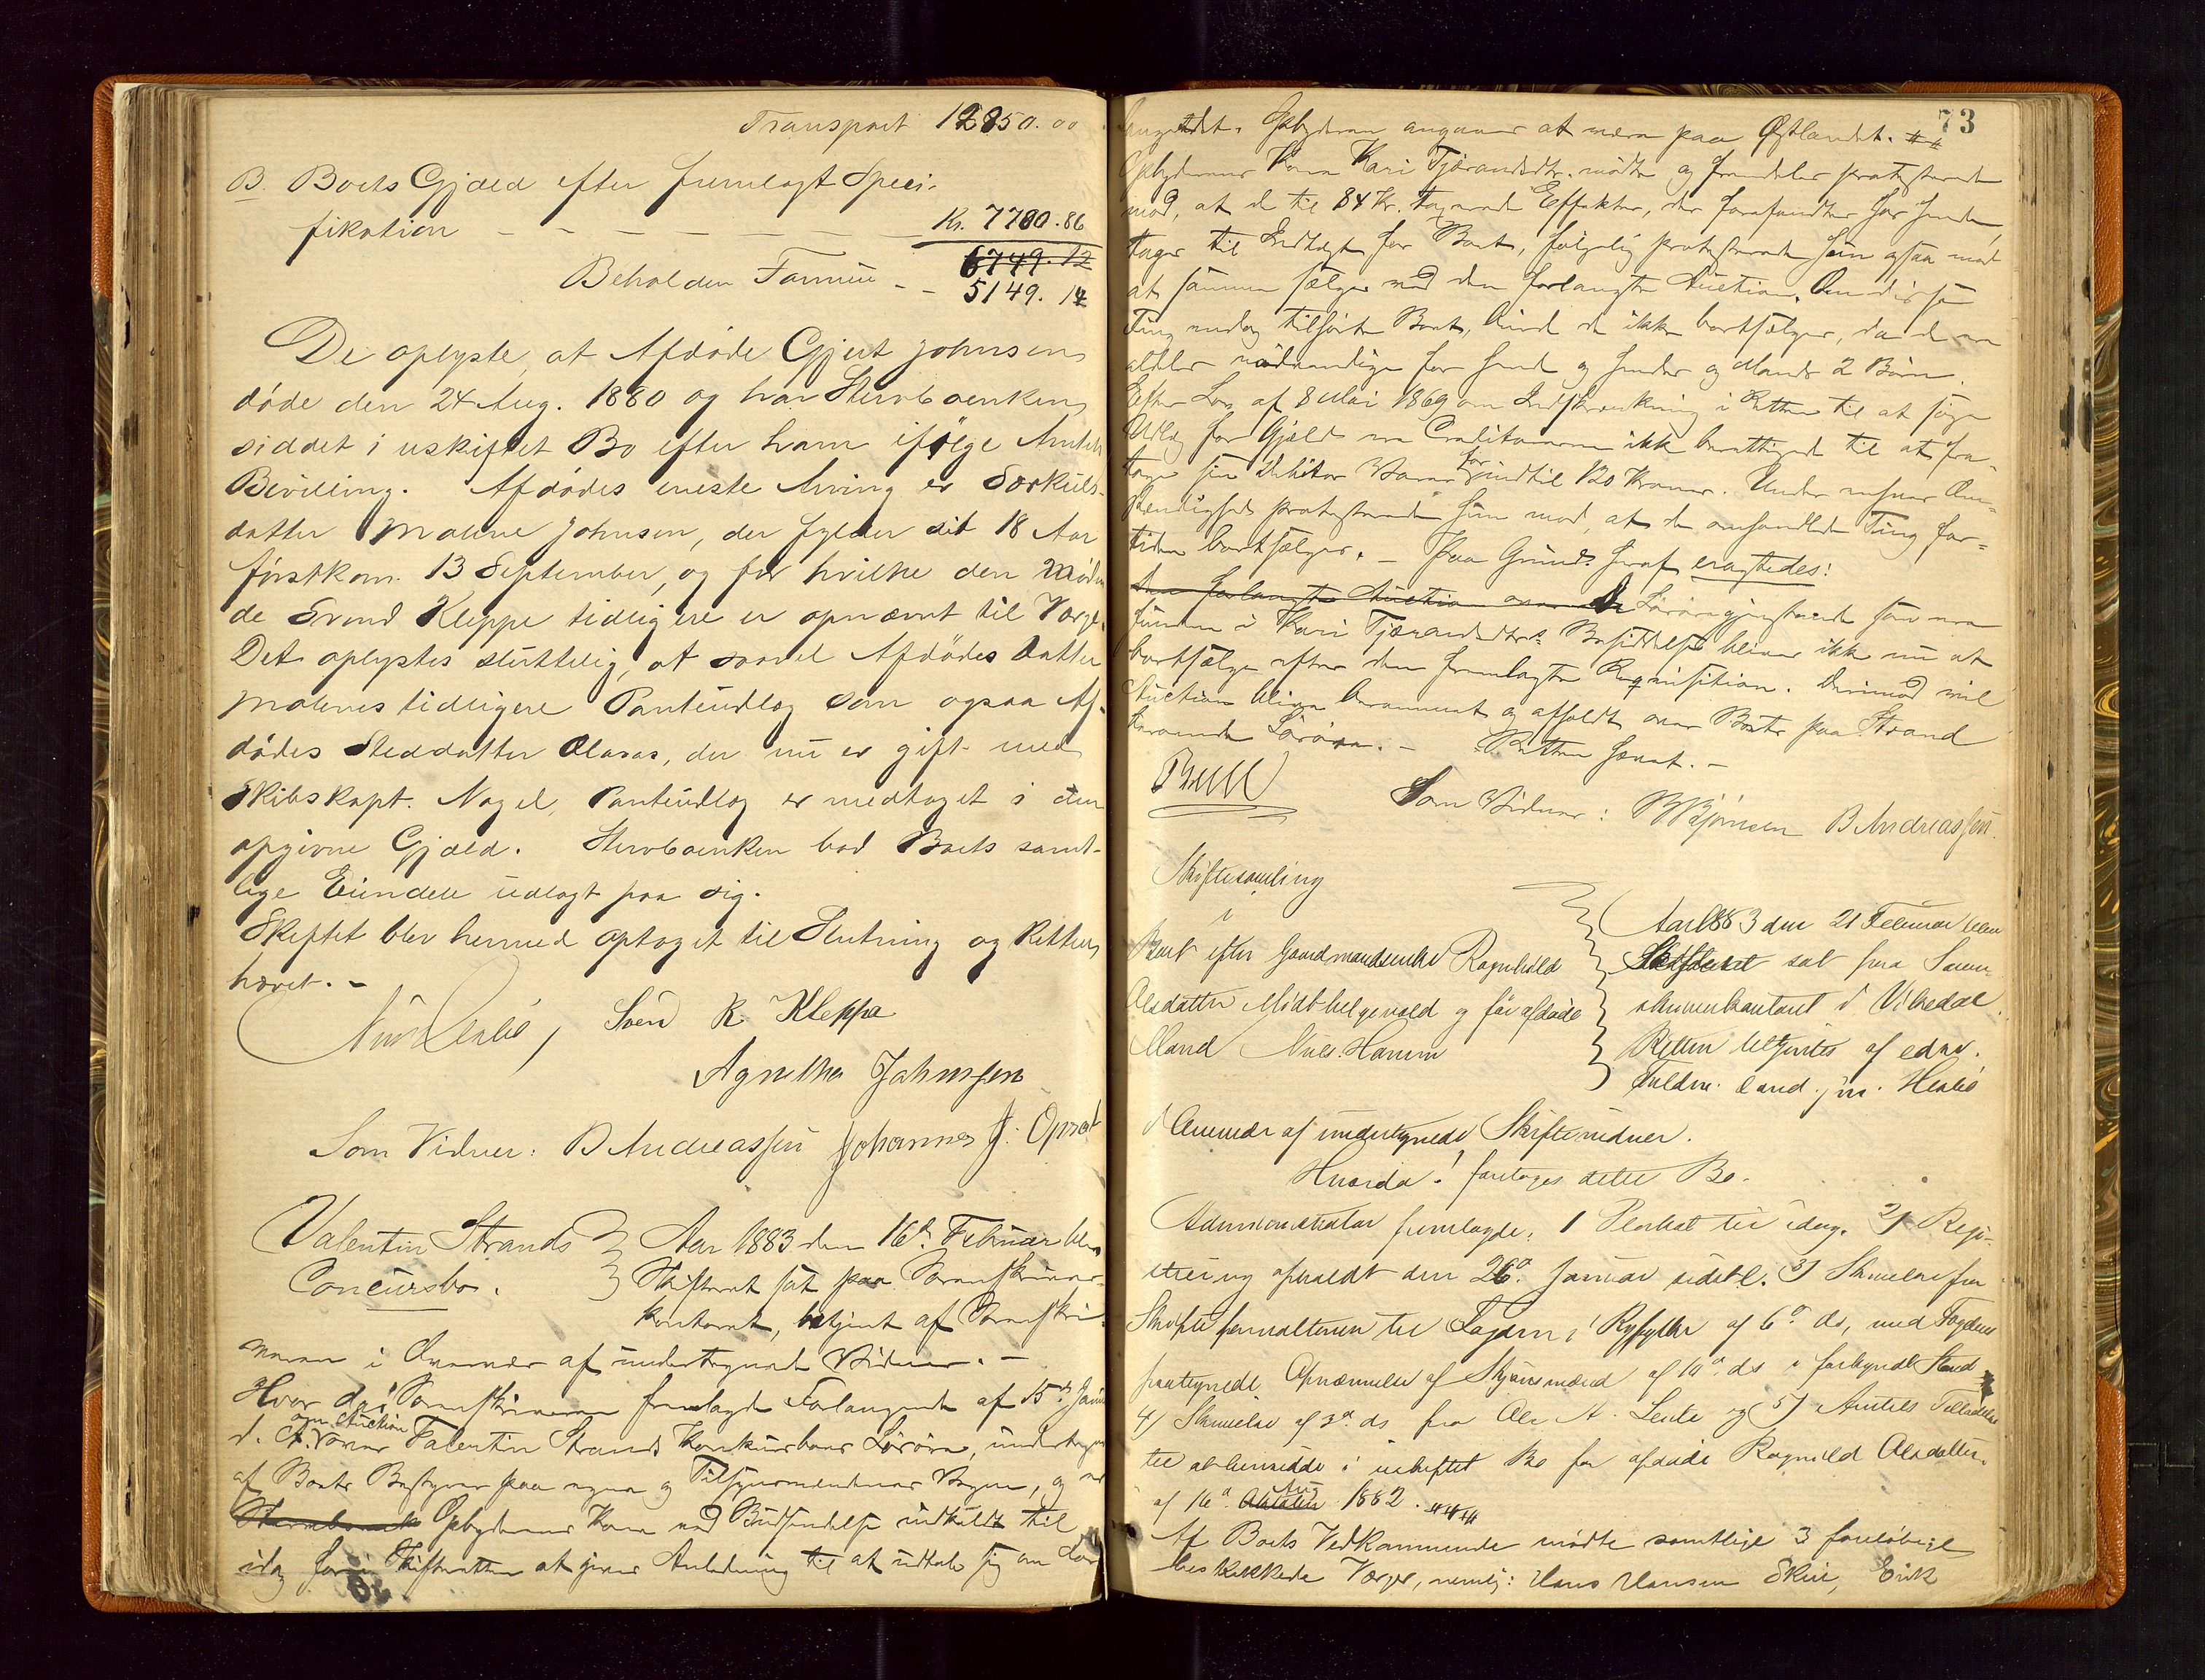 Transport 12850.00
B. Boets Gjæld efter fremlagt Speci-
fikation — — — — — Kr. 7700.86
6749.12
Beholden Formue - - 5149.14
De oplyste, at Afdøde Gjert Johnsen
døde den 24 Aug. 1880 og har Stervboenken
siddet i uskiftet Bo efter ham ifølge Amtets
Bevilling. Afdødes eneste Arving er Sørkuls-
datter Malene Johnsen, der fylder sit 18 Aar
førstkom. 13 September, og for hvilke den Møden-
de Svend Kleppe tidligere er opnævnt til Værge.
Det oplystes sluttelig, at saavel Afdødes Datter
Malenes tidligere Panteudlæg som ogsaa Af-
dødes Steddatter Olavas, der nu er gift med
Skibskapt. Nagel, Panteudlæg er medtaget i den
opgivne Gjæld. Stervboenken bad Boets samt-
lige Eiendele udlagt paa sig.
Skiftet blev hermed optaget til Slutning og Retten
hævet. -
Svend R Kleppe
Agnetha Johnssen
Som Vidner: B Andreassen Johannes J. Opsal
Valentin Strands Aar 1883 den 16de Februar blev
Concursbo. Skifteret sat paa Sorenskriver-
kontoret, betjent af Sorenskri-
veren i Overvær af undertegnede Vidner. -
Hvor da: Sorenskriveren fremlagde Forlangende af 15de Janu
d. A. om Auction over Valentin Strands Konkursboes Løsøre, undertegnet
af Boets Bestyrer paa egne og Tilsynsmændenes Vegne, og
Opbyderens Kone ved Budsendelse indkaldt til
idag for Skifteretten at gives Anledning til at udtale sig om
73
Opbyderen angives at være paa Østlandet.
Opbyderens Kone Kari Tjørandsdtr. mødte og fremdeles protesterede
mod, at de til 84 Kr. taxerede Effekter, der forefandtes hos hende,
tages til Indtægt for Boet, følgelig protesterede hun ogsaa mod
at samme sælges ved den forlangte Auction. Om disse
Ting endog tilhørte Boet, burde de ikke bortsælges, da de ere
aldeles nødvendige for hende og hendes og Mands 2 Børn.
Efter Lov af 8 Mai 1869 om Indskrænkning i Retten til at søge
Udlæg for Gjæld ere Creditorerne ikke berettiget til at fra-
tage sin Debitor Varer for indtil 120 Kroner. Under Om-
stændigheder protesterede hun mod, at de omhandlede Ting for-
tiden bortsælges. - Paa Grund heraf eragtedes:
De Løsøregjenstande som ere
fundne i Kari Tjørandsdtrs Besiddelse bliver ikke nu at
bortsælge efter den fremlagte Requisition. Derimod vil
Auction blive berammet og afholdt over Boets paa Strand
værende Løsøre. - Retten hævet. -
Bull
Som Vidner: B Bjørnsen B Andreassen.
Skiftesamling
i
Boet efter Gaardmandsenke Ragnhild
Olsdatter Midthelgevold og før afdøde
Mand Nils Hansen
Aar 1883 den 21 Februar blev
Skifteret sat paa Soren-
skriverkontoret i Vikedal.
Retten betjentes af edsv.
Fuldm. Cand. jur. Henlie
i Overvær af undertegnede Skiftevidner.
Hvorda! foretoges dette Bo.
Administrator fremlagde: 1 Plakat til idag. 2) Regi-
strering afholdt den 26de Januar sidstl. 3) Skrivelse fra
Skifteforvalteren til Fogden i Ryfylke af 6te ds, med Fogdens
paategnede Opnævnelse af Skjønsmænd af 10de ds
4) Skrivelse af 3de ds. fra Ole A. og 5) Amtets Tilladelse
til at hensidde i uskiftet Bo for afdøde Ragnild Olsdatter
af 16de Aug 1882.
Af Boets Vedkommende mødte samtlige 3 foreløbige
beskikkede Værger, nemlig: Hans Hansen Skeie, Erik